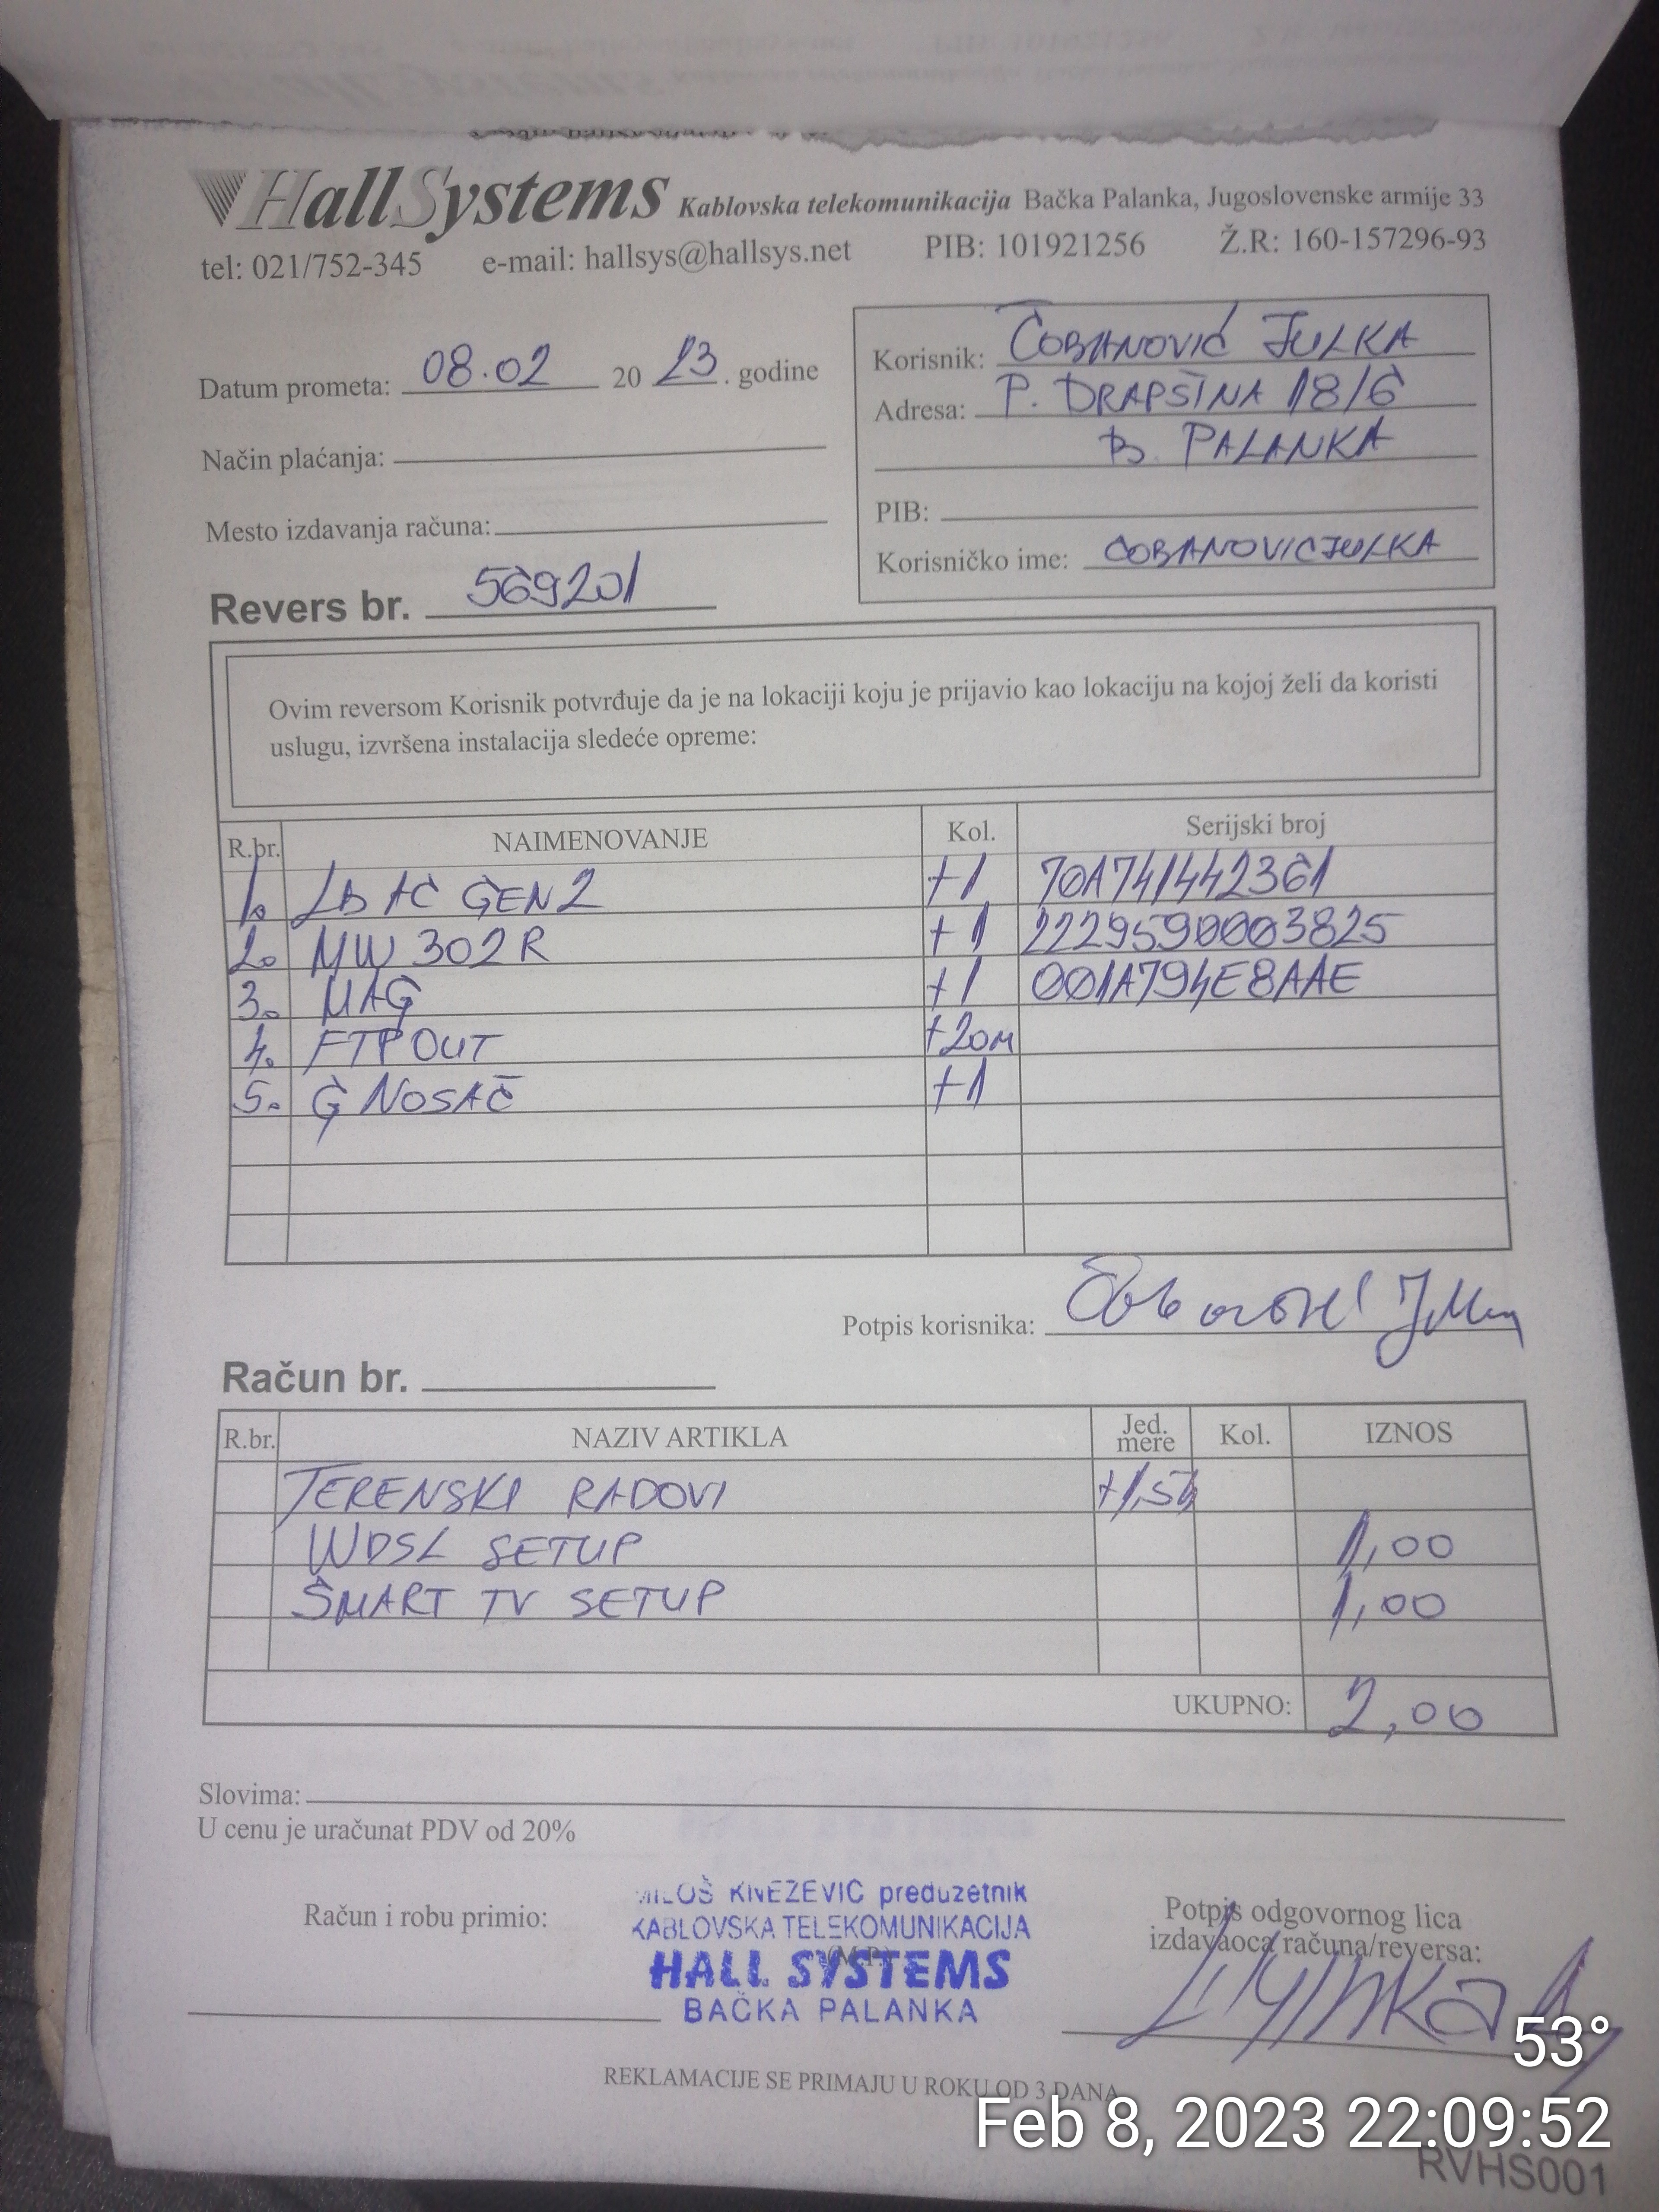 HallSystems Kablovska telekomunikacija Bačka Palanka, Jugoslovenske armije 33
tel: 021/752-345 e-mail: hallsys@hallsys.net PIB: 101921256 Ž.R: 160-157296-93
Datum prometa: 08.02 2023. godine
Način plaćanja:
Mesto izdavanja računa:
Revers br. 569201
Korisnik: ČOBANOVIĆ JULKA
Adresa: P. DRAPŠINA 18/6
B. PALANKA
PIB:
Korisničko ime: COBANOVICJULKA
Ovim reversom Korisnik potvrđuje da je na lokaciji koju je prijavio kao lokaciju na kojoj želi da koristi
uslugu, izvršena instalacija sledeće opreme:
R.br. NAIMENOVANJE Kol. Serijski broj
1. LB AC GEN2 +1 70A741442361
2. MW 302R +1 2229590003825
3. MAG +1 001A794E8AAE
4. FTP OUT +20m
5. G NOSAČ +1
Potpis korisnika: Čobanović Julka
Račun br.
R.br. NAZIV ARTIKLA Jed. mere Kol. IZNOS
TERENSKI RADOVI +1,5h
WDSL SETUP 1,00
SMART TV SETUP 1,00
UKUPNO: 2,00
Slovima:
U cenu je uračunat PDV od 20%
Račun i robu primio:
MILOŠ KNEZEVIC preduzetnik
KABLOVSKA TELEKOMUNIKACIJA
HALL SYSTEMS
BAČKA PALANKA
(M.P.)
Potpis odgovornog lica
izdavaoca računa/reversa:
REKLAMACIJE SE PRIMAJU U ROKU OD 3 DANA
53°
Feb 8, 2023 22:09:52
RVHS001